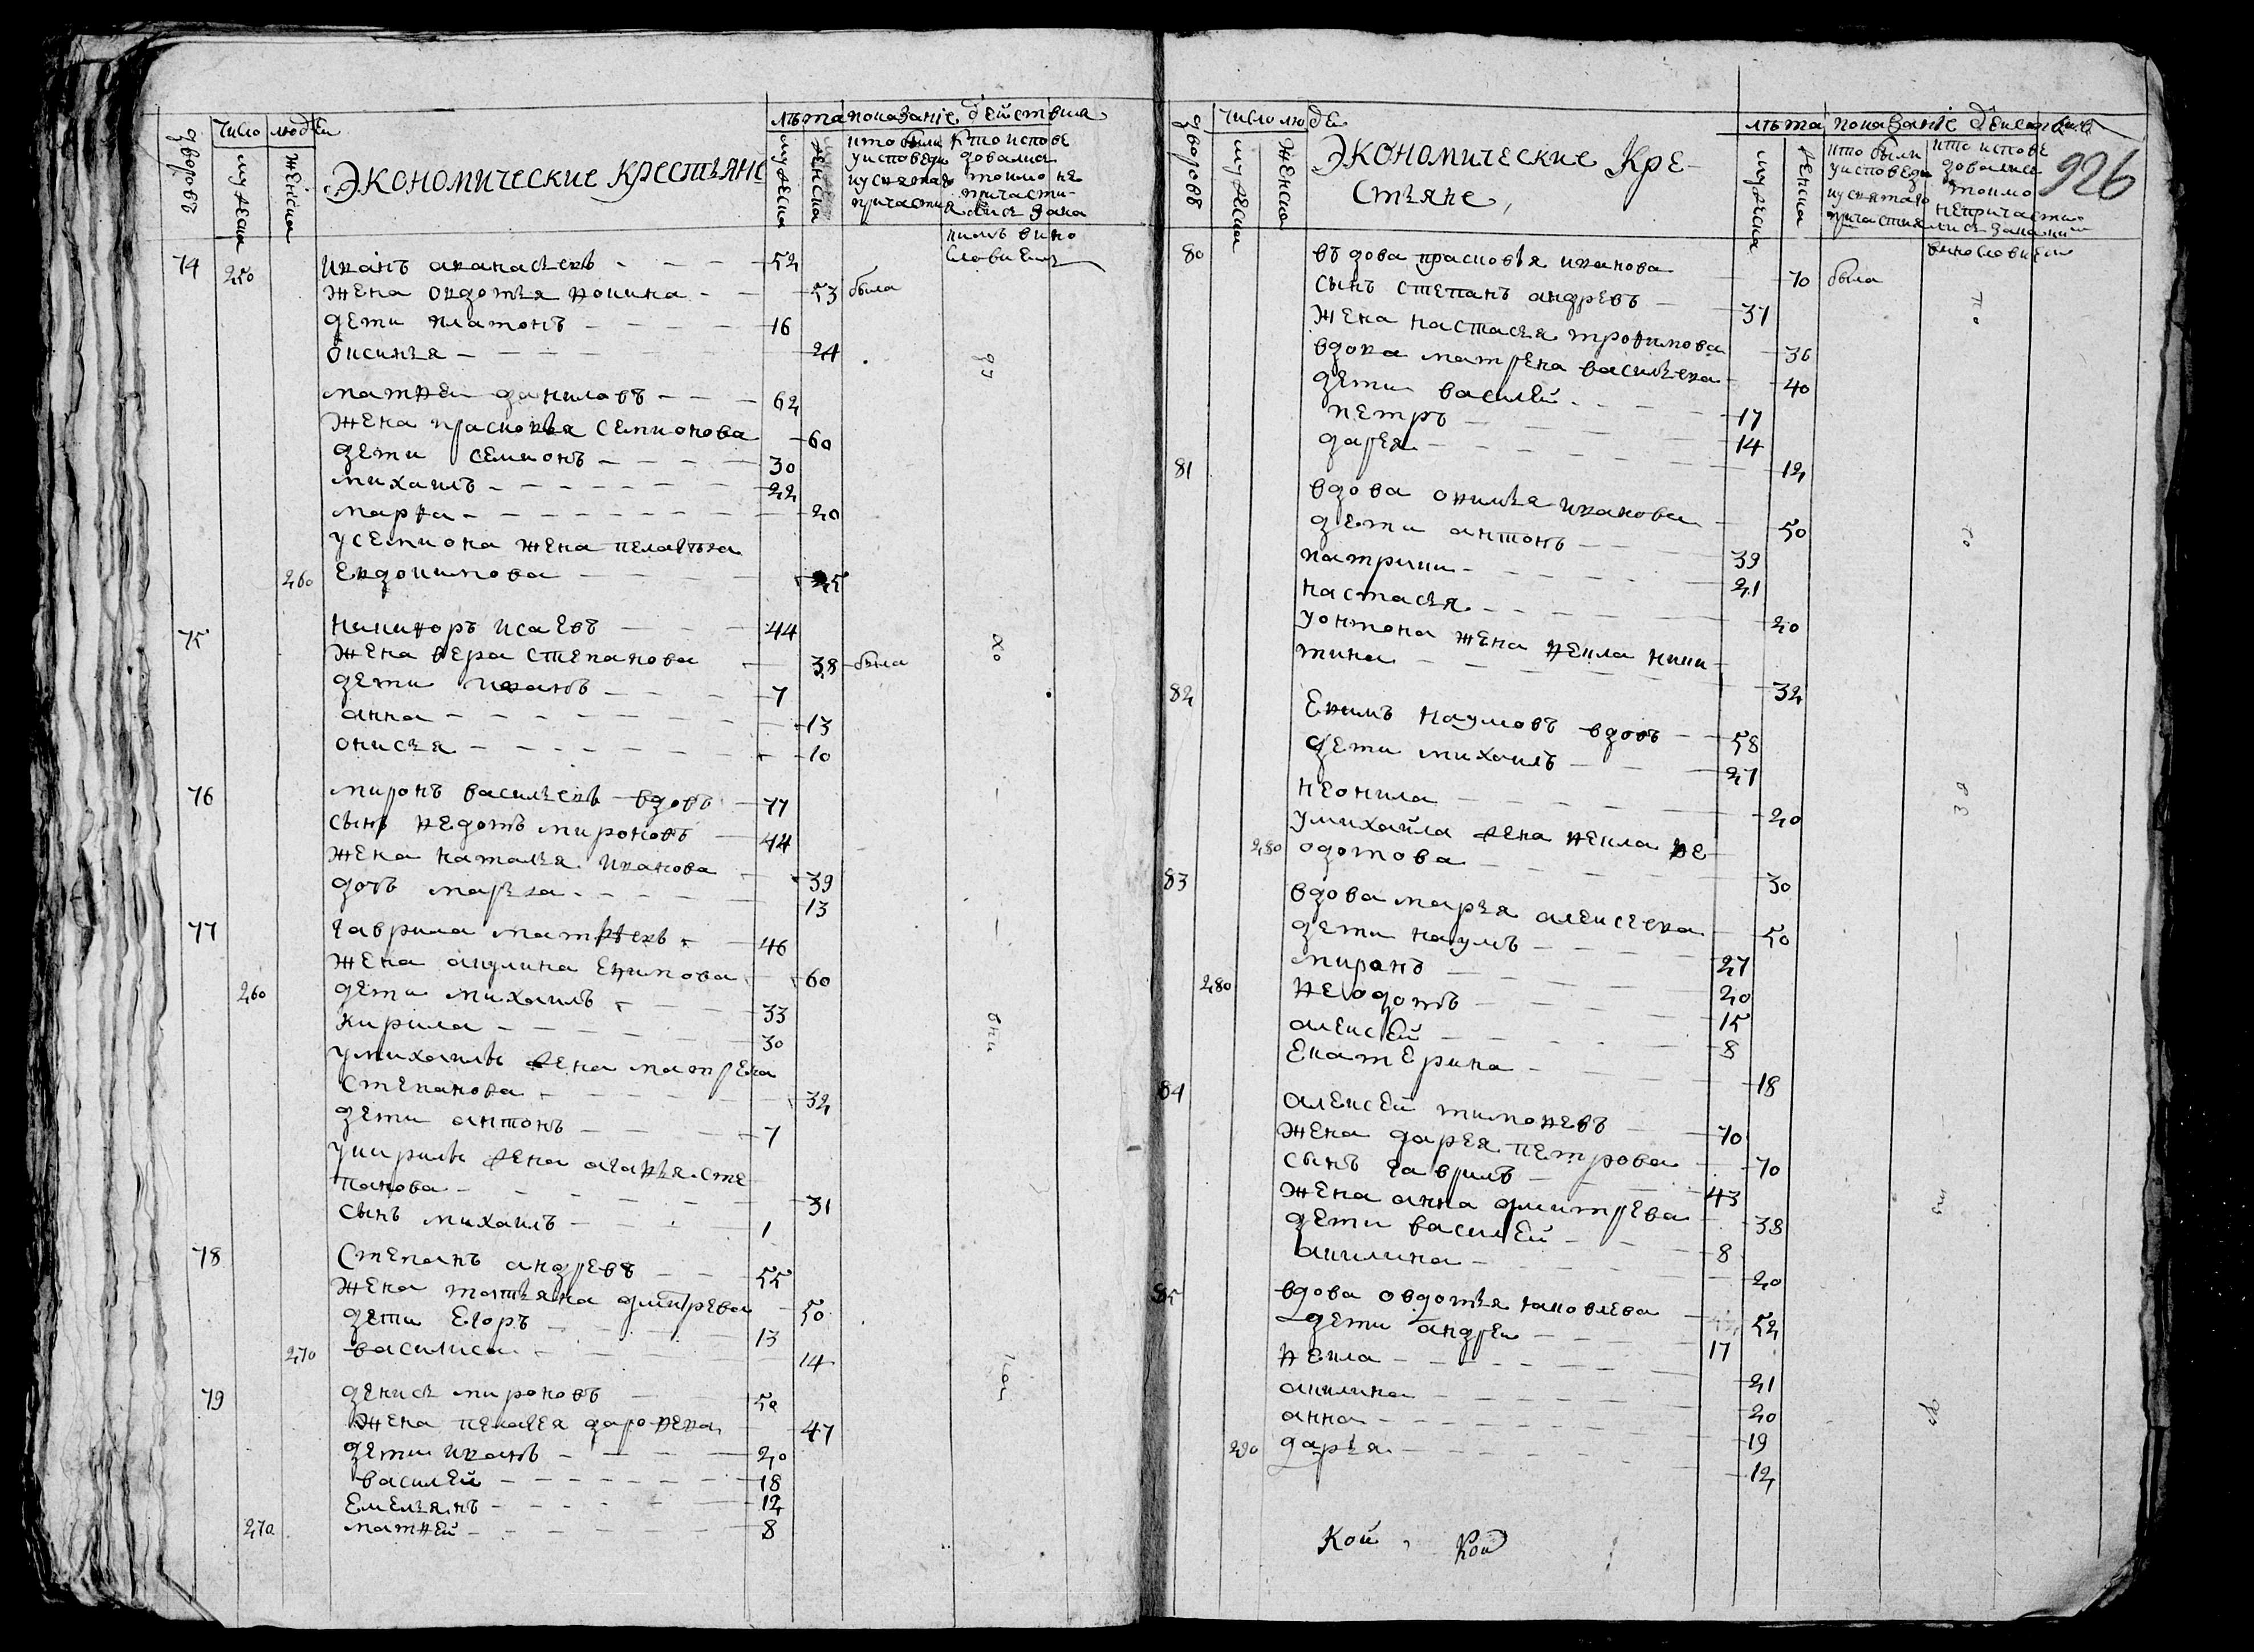 дворовъ
число людеи
мужеска
женска
Экономические крестьяне
лѣта
мужеска
женска
показанiе действия
кто были
уисповеди
иусвятаго
причастия
кто испове
довалися
токмо не
причасти-
лись зака
кимъ вино
словиемъ
74 250 Иванъ аѳанасьевъ 52
жена овдотья ѳокина 53 была
дети платонъ 16
оксинья 24
матѳеи даниловъ 62
жена прасковья семионова 60
дети семионъ 30
михаилъ 22
марѳа 20
усемиона жена пелагѣа
260 Евдокимова 25
75 никиѳоръ исаевъ 44
жена вера степанова 38 была
дети иванъ 7
анна 13
онисья 10
76 миронъ васильевъ вдовъ 77
сынъ ѳедотъ мироновъ 44
жена наталья иванова 39
дочь марьа 13
77 гаврила матвѣевъ 46
жена акулина Еѳимова 60
260 дети михаилъ 33
кирила 30
умихаилы жена матрена
степанова 32
дети антонъ 7
укирилы жена агаѳья сте
панова 31
сынъ михаилъ 1
78 Степанъ андревъ 55
жена татьяна дмитрева 50
дети Егоръ 13
270 василиса 14
79 денись мироновъ 50
жена пелагея дороѳева 47
дети иванъ 20
василей 18
Емельянъ 12
270 матѳей 8
926
дворовъ
число люде
мужеска
женска
Экономические Кре-
стьяне,
лѣта
мужеска
женска
показанiе действия
кто были
уисповеди
иусвятаго
причастия
кто испове
довались
токмо
непричасти
лись закаким
винословием
80 въдова прасковья иванова 70 была
сынъ степанъ андревъ 37
жена настасья троѳимова 36
вдова матрена васильева 40
дети василей 17
петръ 14
дарея 12
81 вдова оѳимья иванова 50
дети антонъ 39
патрики 21
настасья 20
уонтона жена ѳекла ники
тина 32
82 Еѳимъ наумовъ вдовъ 58
дети михаилъ 27
неонила 20
умихайла жена ѳекла ѳе
280 одотова 30
83 вдова марья алексеева 50
дети наумъ 27
миронъ 20
280 ѳеодотъ 15
алексей 8
Екатерина 18
84 алексей тимоѳевъ 70
жена дарея петрова 70
сынъ гаврилъ 43
жена анна дмитрева 38
дети василей 8
акилина 20
85 вдова овдотья яковлева 52
дети андреи 17
ѳекла 21
акилина 20
анна 19
290 дарья 12
Кой, Кой